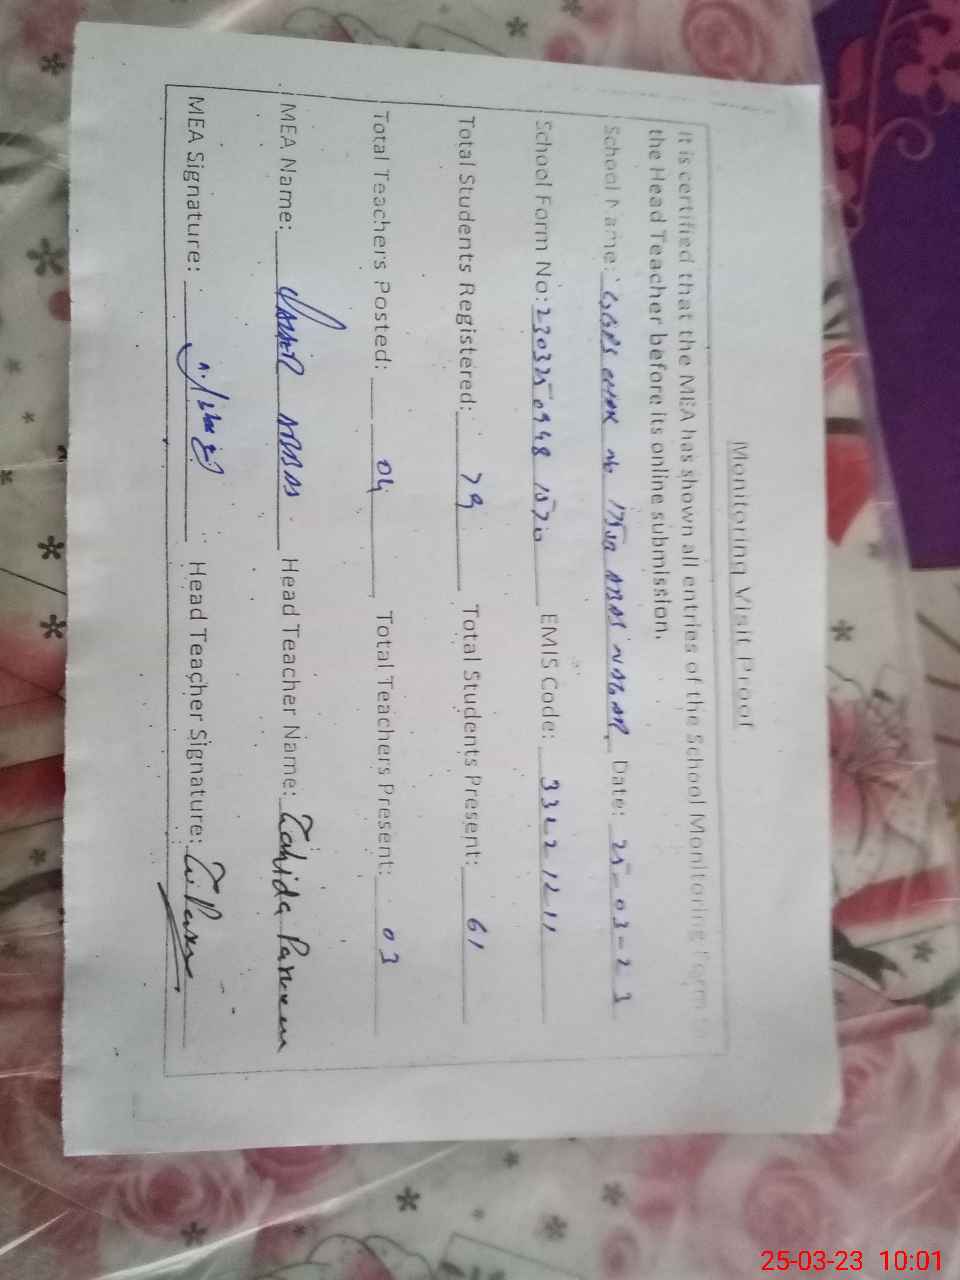 Monitoring Visit Proof
It is certified that the MEA has shown all entries of the School Monitoring Form to
the Head Teacher before its online submission.
School Name: GGPS CHAK No ABAS NAGAR Date: 25-03-23
School Form No: EMIS Code:
Total Students Registered: 79 Total Students Present: 61
Total Teachers Posted: 04 Total Teachers Present: 03
MEA Name: ABBAS Head Teacher Name: Tahida Parveen
MEA Signature: Head Teacher Signature:
25-03-23 10:01